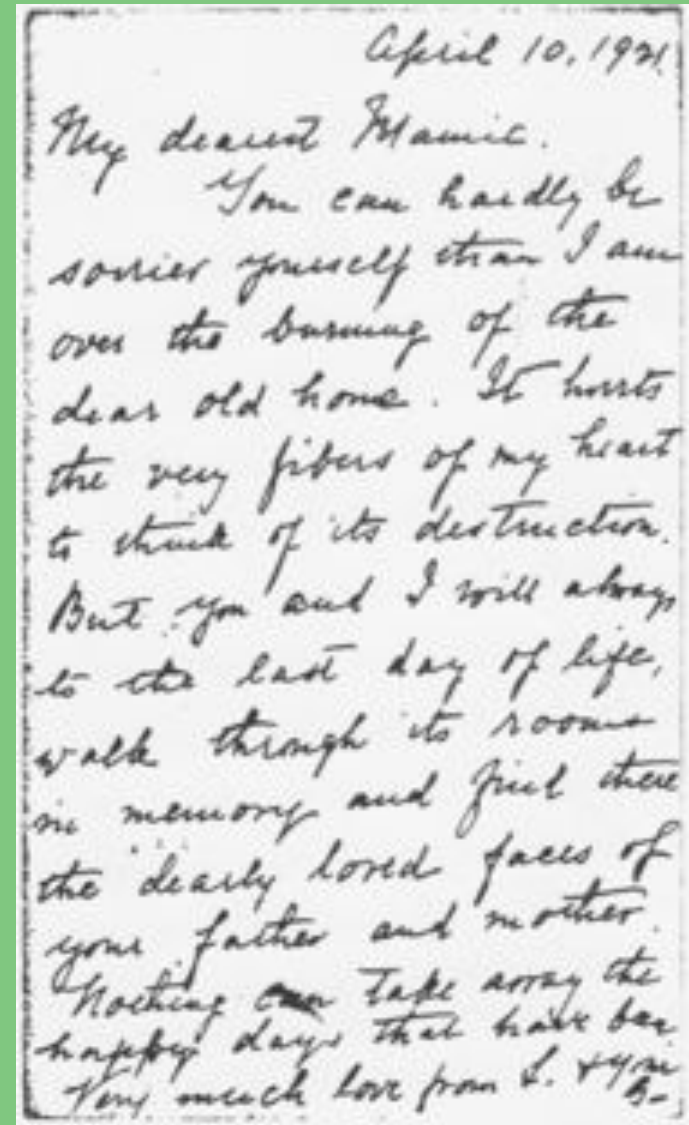 April 10, 1921.
My dearest Mamie.
You can hardly be
sorrier yourself than I am
over the burning of the
dear old home. It hurts
the very fibers of my heart
to think of its destruction.
But you and I will always
to the last day of life,
walk through its rooms
in memory and find there
the dearly loved faces of
your father and mother.
Nothing can take away the
happy days that have been
Very much love from L.